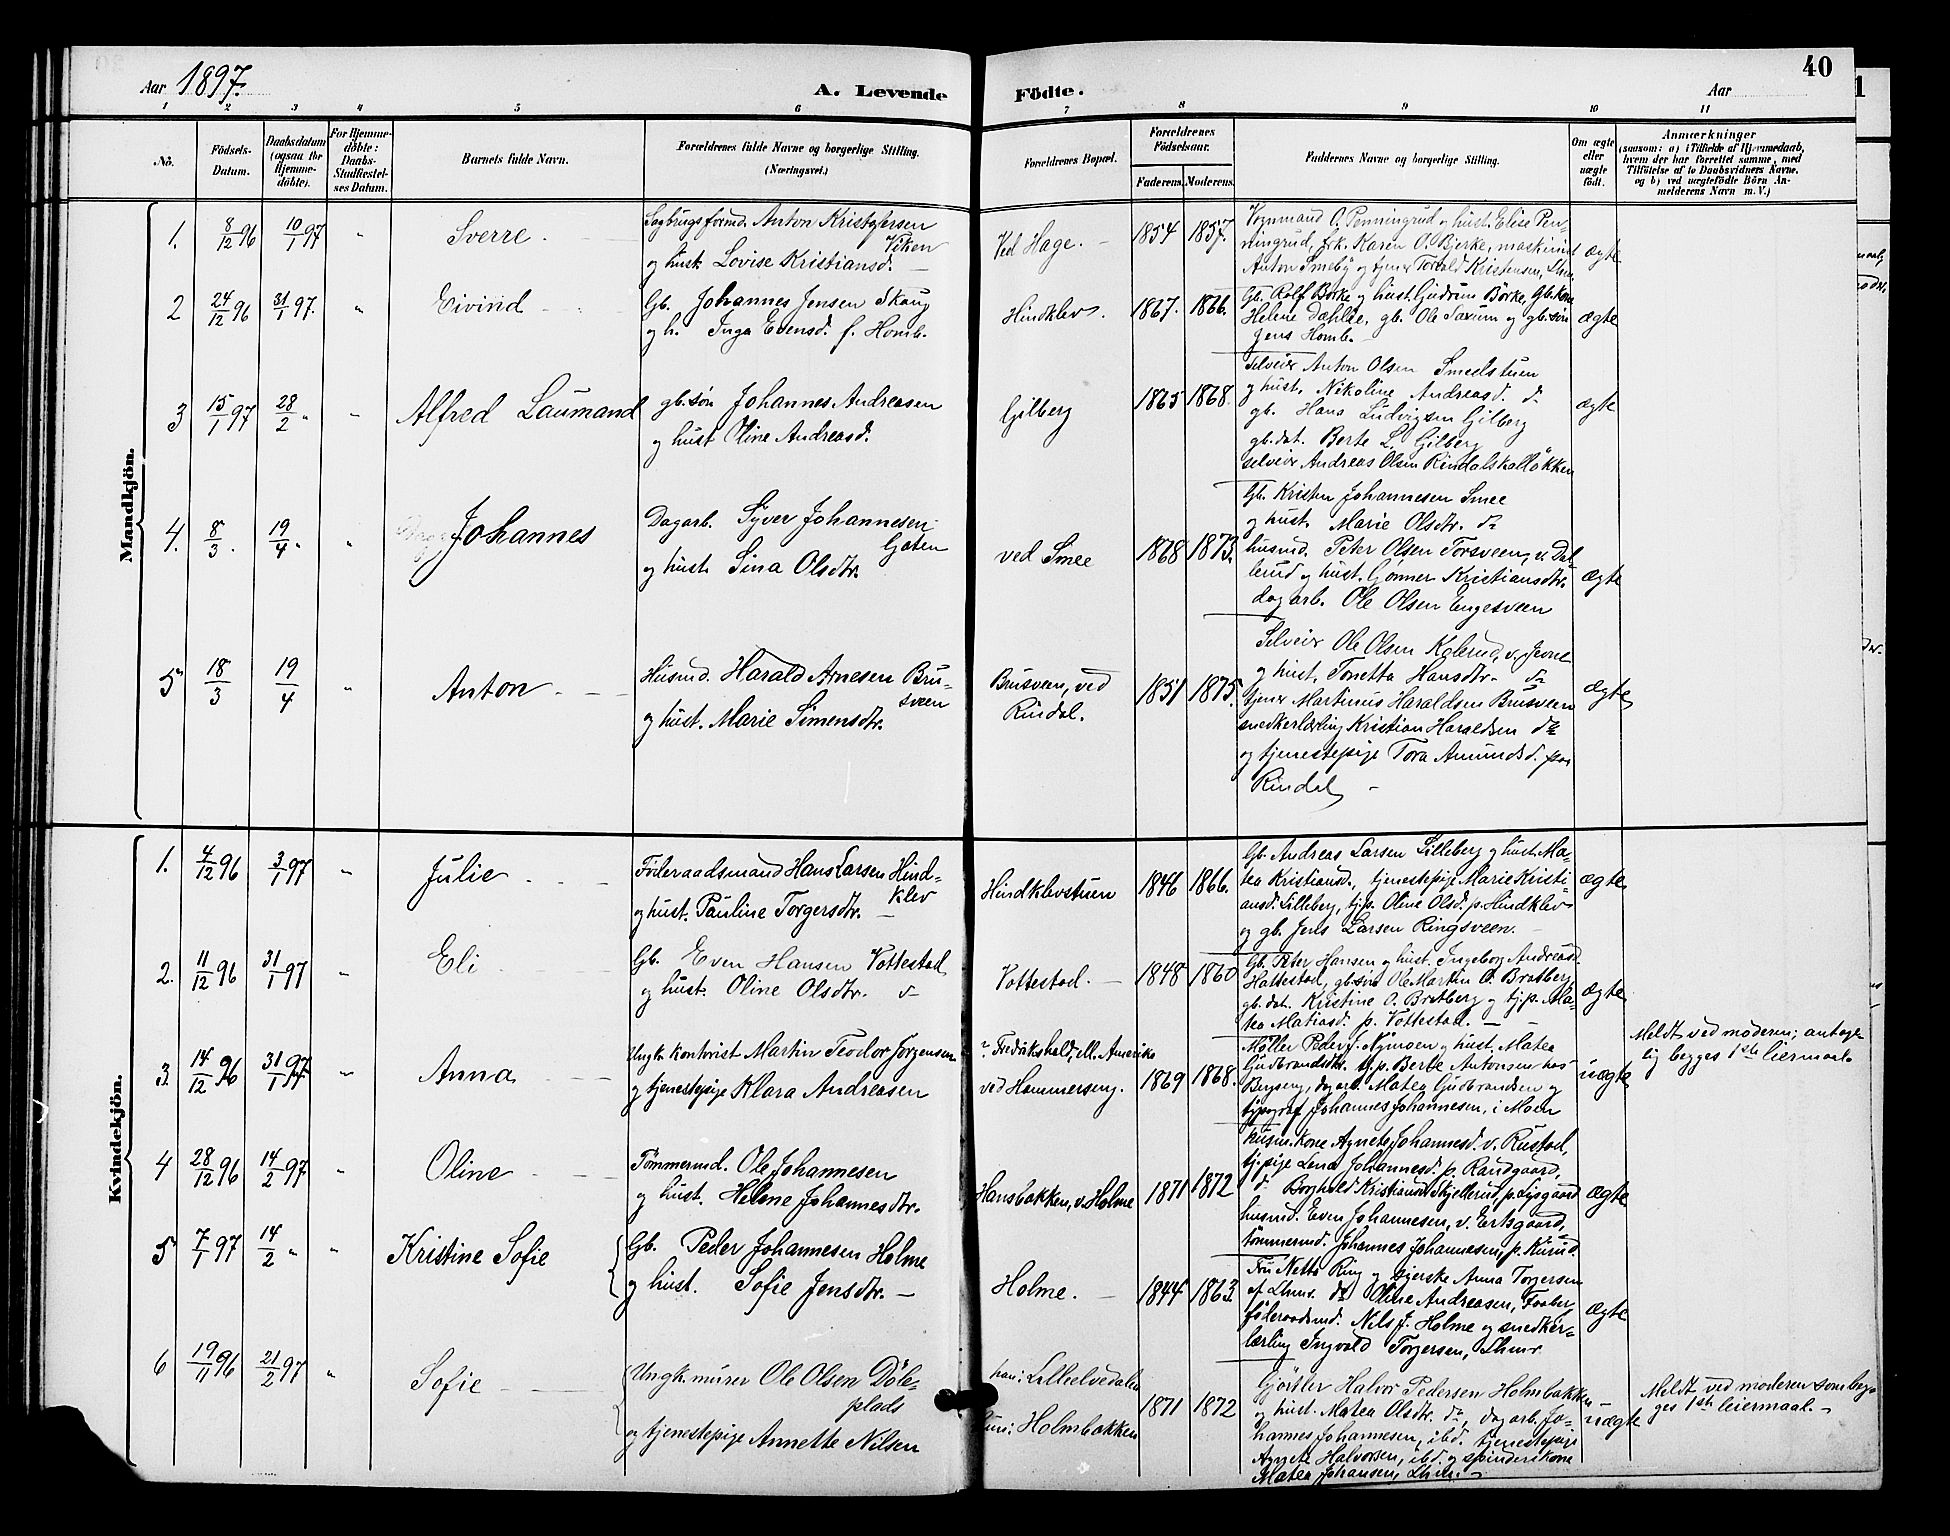 Aar 1897.
A. Levende Födte.
Aar
40
1 2 3 4 5 6 7 8 9 10 11
No.
Födsels-Datum.
Daabsdatum (ogsaa for Hjemme-döbte).
For Hjemme-döbte: Daabs-Stadfæstel-ses Datum.
Barnets fulde Navn.
Forældrenes fulde Navne og borgerlige Stilling. (Næringsvei.)
Forældrenes Bopæl.
Forældrenes Födselsaar.
Faderens. Moderens.
Faddernes Navne og borgerlige Stilling.
Om ægte eller uægte födt.
Anmærkninger
(saasom: a) i Tilfælde af Hjemmedaab,
hvem der har forrettet samme, med
Tilföielse af to Daabsvidners Navne,
og b) ved uægtefödte Börn An-
melderens Navn m. V.)
Mandkjön.
1. 8/12 96 10/1 97 " Sverre.
Sagbrugsformd. Anton Kristofersen
Viken
og hust. Lovise Kristiansd.
Ved Hage. 1854 1857.
Vognmand O. Penningrud og hust. Elise Pen-
ningrud, frk. Karen O. Bjerke, maskinist
Anton Smeby og tjener Torvald Kristensen, Lhmr.
ægte
2 24/12 96 31/1 97. " Eivind
Gb. Johannes Jensen Skaug
og h. Inga Evensd. f. Homb.
Hindklev. 1867. 1866.
Gb. Rolf Börke og hust. Gudrun Börke, Gb. kone
Helene Dæhlie, gb. Ole Saxum og gb. sön
Jens Homb.
ægte
3 15/1 97 28/2 " " Alfred Laumand
gb. sön Johannes Andreasen
og hust Oline Andreasd.
Gilberg 1865 1868.
Selveier Anton Olsen Smeelstuen
og hust. Nikoline Andreasd. do
gb. Hans Ludvigsen Gilberg
gb. dat. Berte L. Gilberg
selveier Andreas Olsen Rindalskalløkken
ægte
4. 8/3. 19/4 " " Johannes
Dagarb. Syver Johannesen
Gaten
og hust. Sina Olsdtr.
ved Smee 1868 1873.
Gb. Kristen Johannesen Smee
og hust. Marie Olsdtr. do
husmd. Peter Olsen Torsveen, v. Dal-
lerud og hust. Gønner Kristiansdtr.
dagarb. Ole Olsen Engesveen
ægte
5 18/3 19/4 " Anton
Husmd. Harald Arnesen Bru-
sveen
og hust. Marie Simensdtr.
Brusveen, ved
Rindal.
1851 1875.
Selveier Ole Olsen Kolerud, v. Jevne
og hust. Tonetta Hansdtr. do
tjener Martinus Haraldsen Brusveen
snedkerlærling Kristian Haraldsen do
og tjenestepige Tora Amundsd. paa
Rindal
ægte
Kvindekjön.
1. 4/12 96 3/1 97 " Julie
Föderaadsmand Hans Larsen Hind-
klev
og hust. Pauline Torgersdtr.
Hindklevstuen 1846 1866.
Gb. Andreas Larsen Lilleberg og hust. Ma-
tea Kristiansd., tjenestepige Marie Kristi-
ansd. Lilleberg, tj.p. Oline Olsd. p. Hindklev
og gb. Jens Larsen Ringsveen.
ægte
2. 11/12 96 31/1 97 " Eli
Gb. Even Hansen Vottestad
og hust. Oline Olsdtr. do
Vottestad. 1848 1860
Gb. Peter Hansen og hust. Ingeborg Andreasd.
Hattestad, gb. sön Ole Martin O. Bratberg,
gb. dat. Kristine O. Bratberg og tj.p. Ma-
tea Matiasd. p. Vottestad.
ægte
3. 14/12 96 31/1 97 " Anna
Ungk. kontorist Martin Teodor Jørgensen
og tjenestepige Klara Andreasen
? Fredrikshald, ell. Amerika
ved Hammerseng. 1869 1868.
Møller Peder J. Nymoen og hust. Matea
Gudbrandsdtr. tj.p. Berte Antonsen hos
Bergseng, dagarb. Matea Gudbrandsen og
typograf Johannes Johannesen, i Moen
uægte
Meldt ved moderen; antage-
lig begges 1ste leiermaal.
4 28/12 96 14/2 97 " Oline
Tömmermd. Ole Johannesen
og hust. Helene Johannesdtr.
Hansbakken, v. Holme 1871 1872
husm. kone Agnete Johannesd. v. Rustad,
tj. pige Lena Johannesd. p. Randgaard,
do Borghild Kristiansd. Skjellerud, p. Lysgaard
husmd. Even Johannesen, v. Ertsgaard,
tömmermd. Johannes Johannesen, p. Rurud.
ægte
5 7/1 97 14/2 " " Kristine Sofie
Gb. Peder Johannesen Holme
og hust. Sofie Jensdtr.
Holme. 1844 1863.
Fru Netta Ring og syerske Anna Torgersen
af Lhmr. do Oline Andreasen, Faaberg
föderaadsmd. Nils J. Holme og snedker-
lærling Ingvald Torgersen, Lhmr.
ægte
6 19/11 96 21/2 97 " Sofie
Ungk. murer Ole Olsen Döle-
plads
og tjenestepige Annette Nilsen
han: Lilleelvedalen
hun: Holmbakken
1871 1872
Gjörtler Halvor Pedersen Holmbakken
og hust. Matea Olsdtr. do, dagarb. Jo-
hannes Johannesen, ibd. tjenestepige
Agnete Halvorsen, ibd. og spinderskone
Matea Johansen, Lhmr.
uægte
Meldt ved moderen som beg-
ges 1ste leiermaal.